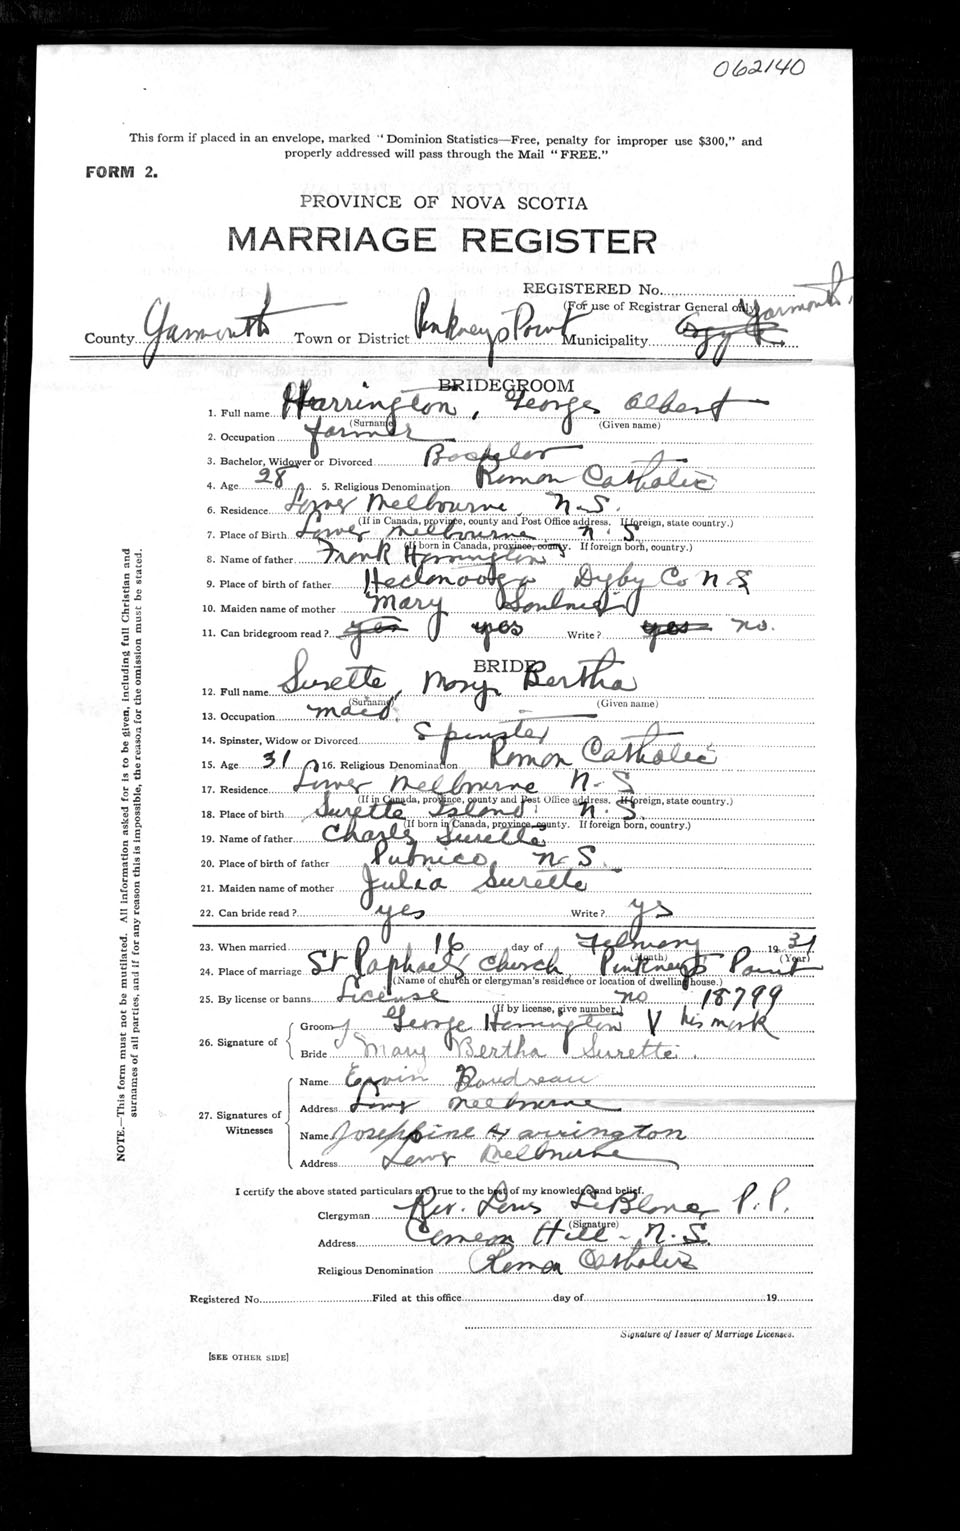 062140
This form if placed in an envelope, marked "Dominion Statistics—Free, penalty for improper use $300," and
properly addressed will pass through the Mail "FREE."
FORM 2.
PROVINCE OF NOVA SCOTIA
MARRIAGE REGISTER
REGISTERED No.
(For use of Registrar General only)
County Yarmouth Town or District Pinkneys Point Municipality Yarmouth
BRIDEGROOM
1. Full name Harrington, George Albert
(Surname) (Given name)
2. Occupation farmer
3. Bachelor, Widower or Divorced Bachelor
4. Age 28 5. Religious Denomination Roman Catholic
6. Residence Lower Melbourne N.S.
(If in Canada, province, county and Post Office address. If foreign, state country.)
7. Place of Birth Lower Melbourne N.S
(If born in Canada, province, county. If foreign born, country.)
8. Name of father Frank Harrington
9. Place of birth of father Hectanooga Digby Co N S
10. Maiden name of mother Mary
11. Can bridegroom read? yes yes Write? yes no.
BRIDE
12. Full name Surette, Mary Bertha
(Surname) (Given name)
13. Occupation maid
14. Spinster, Widow or Divorced Spinster
15. Age 31 16. Religious Denomination Roman Catholic
17. Residence Lower Melbourne N.S
(If in Canada, province, county and Post Office address. If foreign, state country.)
18. Place of birth Surette Island N.S.
(If born in Canada, province, county. If foreign born, country.)
19. Name of father Charles Surette
20. Place of birth of father Pubnico, N.S.
21. Maiden name of mother Julia Surette
22. Can bride read? yes Write? yes
23. When married 16 day of February 1931
(Month) (Year)
24. Place of marriage St Raphael's Church Pinkney's Point
(Name of church or clergyman's residence or location of dwelling house.)
25. By license or banns License no 18799
(If by license, give number.)
26. Signature of
Groom George Harrington his mark
Bride Mary Bertha Surette.
27. Signatures of
Witnesses
Name Ervin Boudreau
Address Lower Melbourne
Name Josephine Harrington
Address Lower Melbourne
I certify the above stated particulars are true to the best of my knowledge and belief.
Clergyman Rev. Louis LeBlanc P.P.
(Signature)
Address Comeau Hill - N.S.
Religious Denomination Roman Catholic
Registered No. Filed at this office day of 19
Signature of Issuer of Marriage Licenses.
[SEE OTHER SIDE]
NOTE.—This form must not be mutilated. All information asked for is to be given, including full Christian and
surnames of all parties, and if for any reason this is impossible, the reason for the omission must be stated.